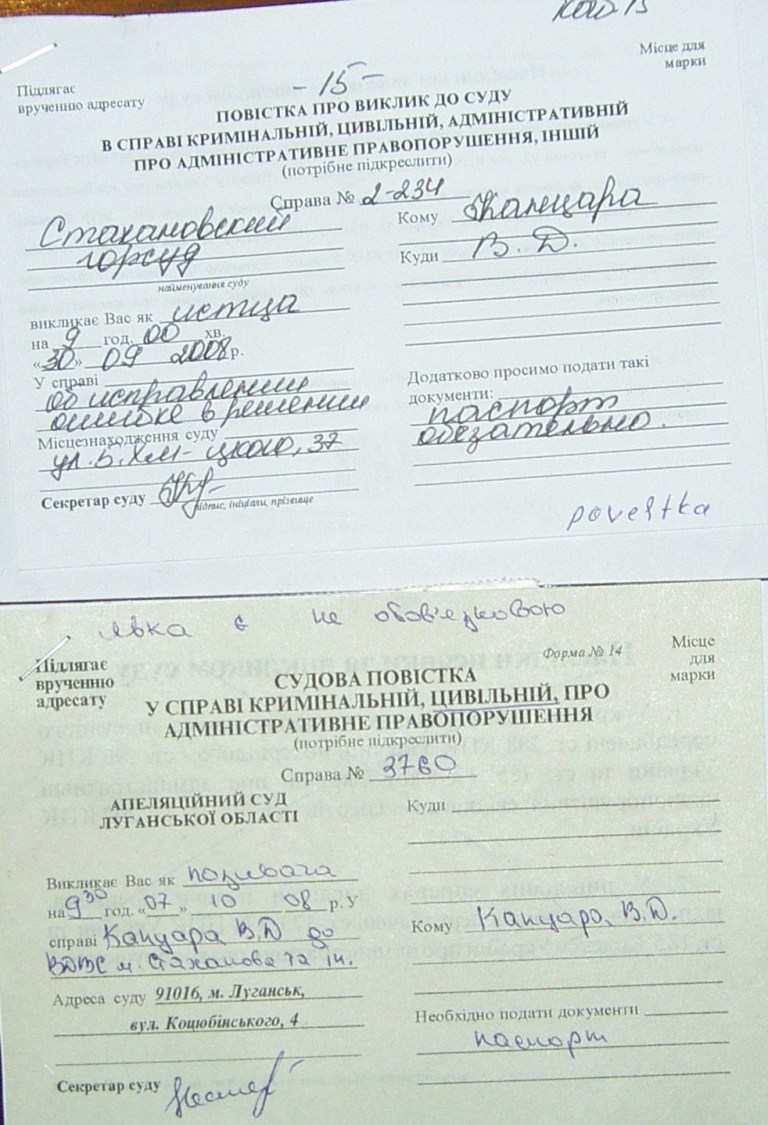 - 15 -
Підлягає
врученню адресату
Місце для
марки
ПОВІСТКА ПРО ВИКЛИК ДО СУДУ
В СПРАВІ КРИМІНАЛЬНІЙ, ЦИВІЛЬНІЙ, АДМІНІСТРАТИВНІЙ
ПРО АДМІНІСТРАТИВНЕ ПРАВОПОРУШЕННЯ, ІНШІЙ
(потрібне підкреслити)
Справа № 2-234
Стахановский
горсуд
найменування суду
викликає Вас як истца
на 9 год. 00 хв.
«30» 09 2008 р.
У справі
об исправлении
ошибке в решении
Місцезнаходження суду
ул. Б. Хм-цкого, 37
Секретар суду
підпис, ініціали, прізвище
Кому Канцара
Куди В. Д.
Додатково просимо подати такі
документи:
паспорт
обязательно.
povestka
явка є не обов'язковою
Форма № 14
Підлягає
врученню
адресату
Місце
для
марки
СУДОВА ПОВІСТКА
У СПРАВІ КРИМІНАЛЬНІЙ, ЦИВІЛЬНІЙ, ПРО
АДМІНІСТРАТИВНЕ ПРАВОПОРУШЕННЯ
(потрібне підкреслити)
Справа № 3760
АПЕЛЯЦІЙНИЙ СУД
ЛУГАНСЬКОЇ ОБЛАСТІ
Викликає Вас як позивача
на 9 30 год. «07» 10 08 р. У
справі Канцара В.Д до
ВДВС м. Стаханова та ін.
Адреса суду 91016, м. Луганськ,
вул. Коцюбінського, 4
Секретар суду
Куди
Кому Канцара, В.Д.
Необхідно подати документи
паспорт